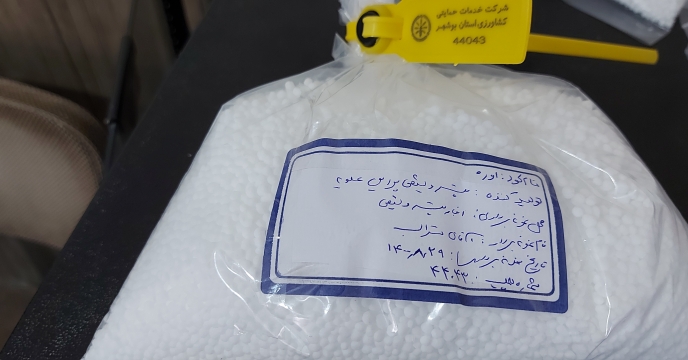 شرکت خدمات حمایتی
کشاورزی استان بوشهر
44043
نام کود: اوره
تولید کننده: پتروشیمی پردیس عسلویه
محل نمونه برداری: انبار پتروشیمی
نام نمونه بردار:
تاریخ نمونه برداری: ۱۴۰۰/۸/۲۹
شماره پلمپ: ۴۴۰۴۳